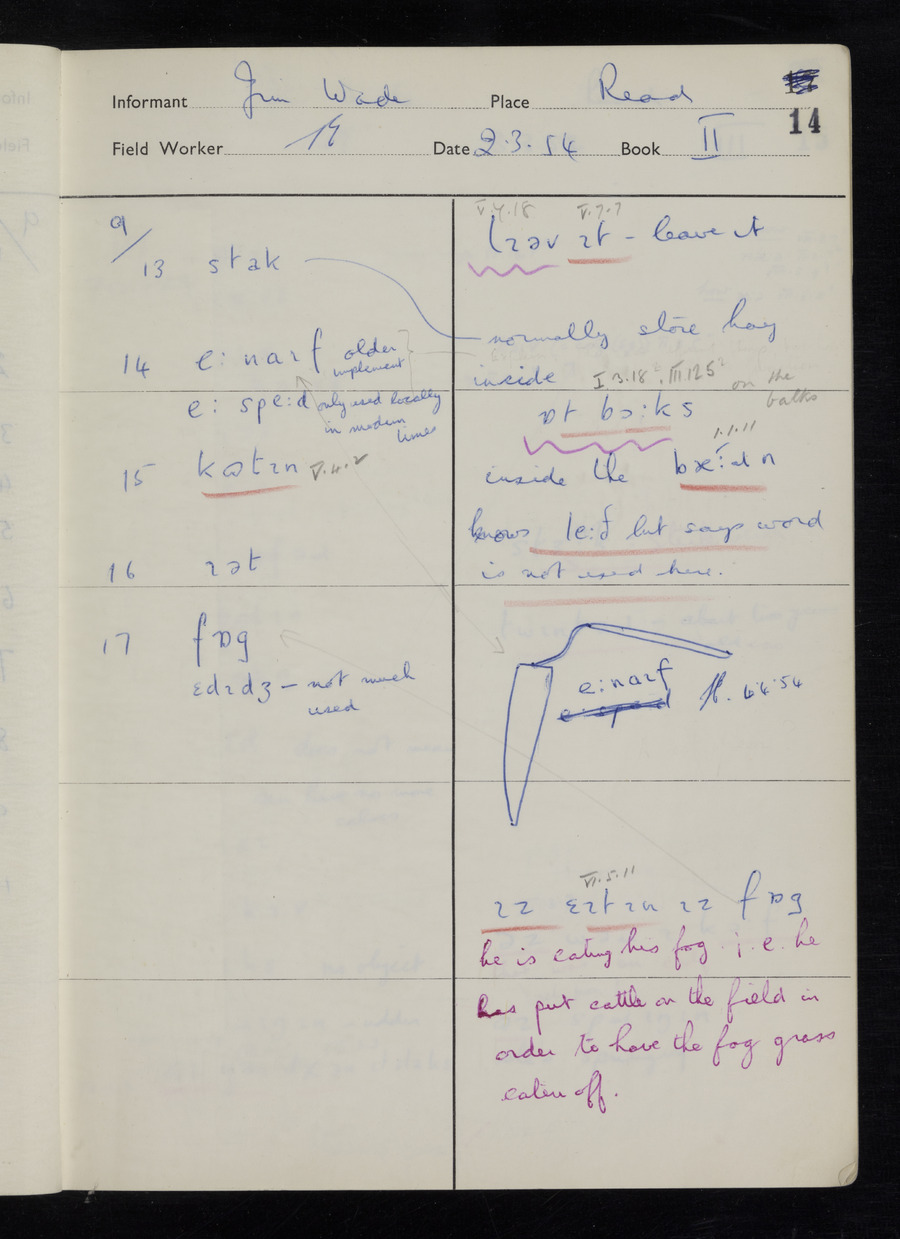 Informant Jim Wade Place Read
14
Field Worker Date 2.3.54 Book II
9/
13 stak
14 e: naɪf older implement
e: spe:d only used locally in modern times
15 kɷtɪn V.4.2
16 ɪət
17 fɒg
ɛdɪdʒ – not much used
V.4.18 V.7.7
lɪəv ɪt – leave it
normally store hay
inside I.3.18², III.125² on the balks
ɒt bɔ:ks
1.1.11
inside the
knows le:f but says word
is not used here.
e:naɪf 6.4.54
e: sped
VI.5.11
ɪz ɛɪtɪn ɪz fɒg
he is eating his fog. i.e. he
has put cattle on the field in
order to have the fog grass
eaten off.